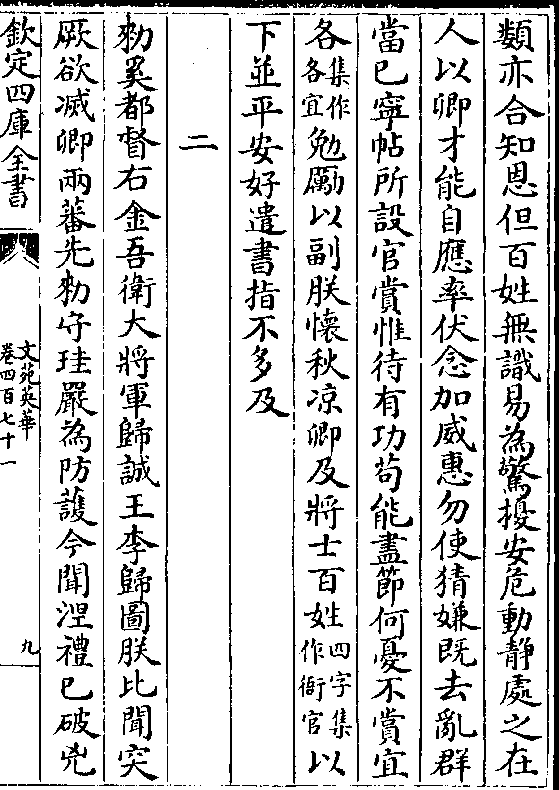 類亦合知恩但百姓無識易為驚擾安危動静處之在
人以卿才能自應率伏念加威惠勿使猜嫌既去亂群
當已寧帖所設官賞惟待有功茍能盡節何憂不賞宜
各集作各宜勉勵以副朕懷秋凉卿及將士百姓四字集作衙官以
下並平安好遣書指不多及
二
勑奚都督右金吾衛大將軍歸誠王李歸國朕比聞突
厥欲滅卿兩蕃先勑守珪嚴為防䕶今聞涅禮已破兇
欽定四庫全書
文苑英華
卷四百七十一
九